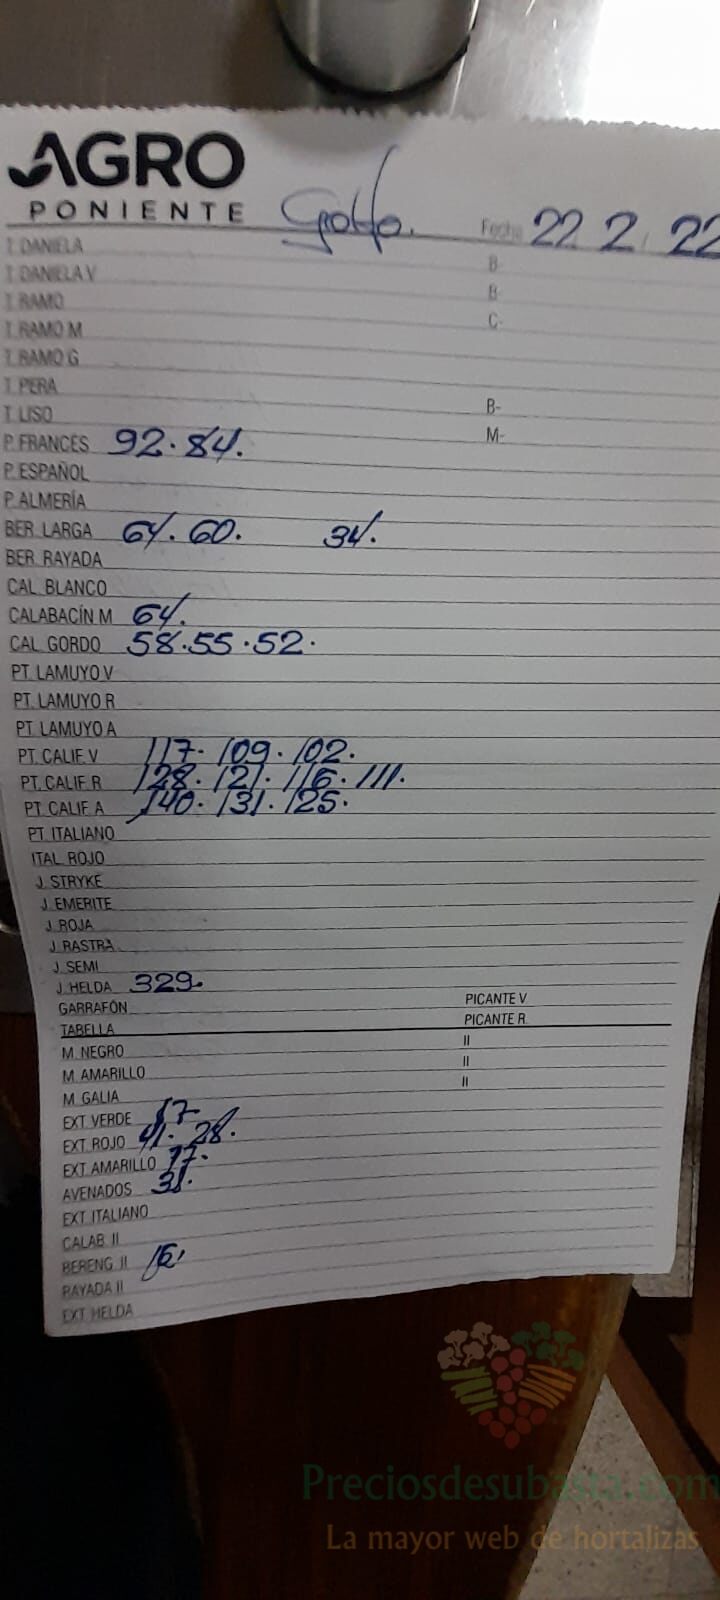 AGRO
PONIENTE
Fecha 22 2 22
T. DANIELA B-
T. DANIELA V B-
T. RAMO C-
T. RAMO M
T. RAMO G
T. PERA
T. LISO B-
P. FRANCÉS 92. 84. M-
P. ESPAÑOL
P. ALMERÍA
BER. LARGA 64. 60. 34.
BER. RAYADA
CAL. BLANCO
CALABACÍN M 64.
CAL. GORDO 58. 55. 52.
PT. LAMUYO V
PT. LAMUYO R
PT. LAMUYO A
PT. CALIF. V 117. 109. 102.
PT. CALIF. R 128. 121. 116. 111.
PT. CALIF. A 140. 131. 125.
PT. ITALIANO
ITAL. ROJO
J. STRYKE
J. EMERITE
J. ROJA
J. RASTRA
J. SEMI
J. HELDA 329.
GARRAFÓN PICANTE V.
TABELLA PICANTE R.
M. NEGRO II
M. AMARILLO II
M. GALIA II
EXT. VERDE
EXT. ROJO 41. 28.
EXT. AMARILLO
AVENADOS
EXT. ITALIANO
CALAB. II
BERENG. II
RAYADA II
EXT. HELDA
Preciosdesubasta.com
La mayor web de hortalizas